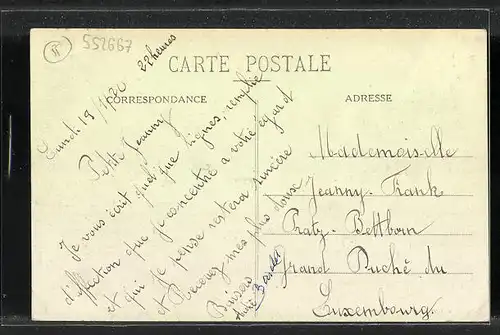 552667
CARTE POSTALE
CORRESPONDANCE
ADRESSE
Lundi 19/1/20 22 heures
Petite Jeanny
Je vous écrit quelque lignes, remplie
d'affection que je concentre a votre égard
et qui je pense restera sincère
Recevez mes plus doux
Baisers
André
Mademoiselle
Jeanny Frank
Pratz-Bettborn
Grand Duché du
Luxembourg.